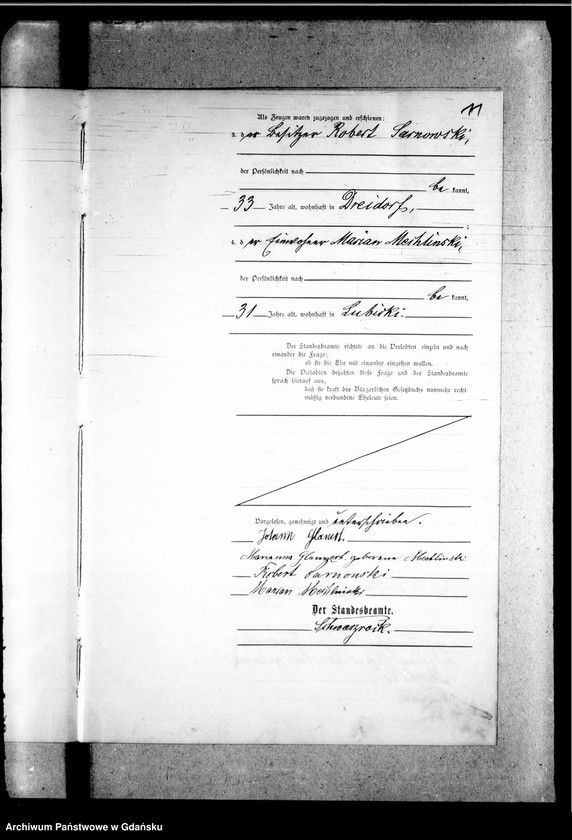 11
Als Zeugen waren zugezogen und erschienen:
3. der Besitzer Robert Sarnowski,
der Persönlichkeit nach
be kannt,
33 Jahre alt, wohnhaft in Dreidorf,
;
4. der Einwohner Marian Mechlinski,
der Persönlichkeit nach
be kannt,
31 Jahre alt, wohnhaft in Lubiki.
Der Standesbeamte richtete an die Verlobten einzeln und nach
einander die Frage:
ob sie die Ehe mit einander eingehen wollen.
Die Verlobten bejahten diese Frage und der Standesbeamte
sprach hierauf aus,
daß sie kraft des Bürgerlichen Gesetzbuchs nunmehr recht-
mäßig verbundene Eheleute seien.
Vorgelesen, genehmigt und unterschrieben.
Johann
Marianna geborene Mechlinski
Robert Sarnowski
Marian Mechlinski
Der Standesbeamte.
Archiwum Państwowe w Gdańsku